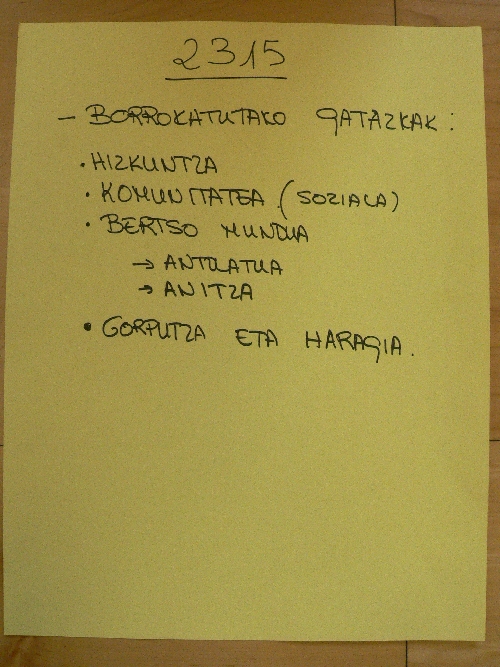 2315
- BORROKATUTAKO GATAZKAK:
• HIZKUNTZA
• KOMUNITATEA (SOZIALA)
• BERTSO MUNDUA
→ ANTOLATUA
→ ANITZA
• GORPUTZA ETA HARAGIA.